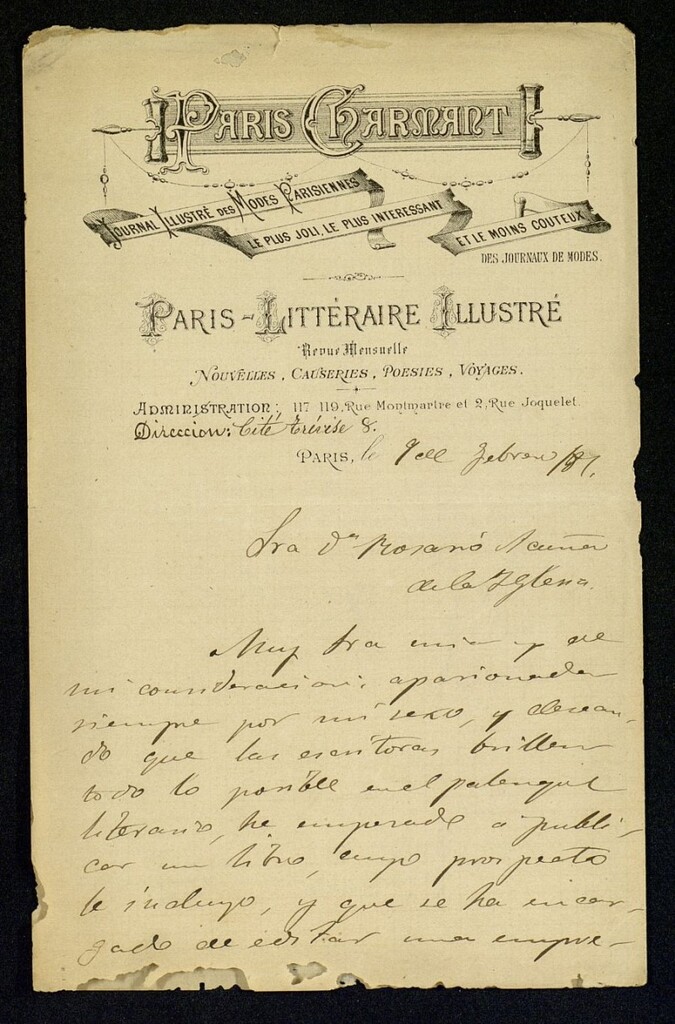 PARIS CHARMANT
JOURNAL ILLUSTRÉ DES MODES PARISIENNES
LE PLUS JOLI, LE PLUS INTERESSANT
ET LE MOINS COUTEUX
DES JOURNAUX DE MODES.
PARIS-LITTÉRAIRE ILLUSTRÉ
Revue Mensuelle
NOUVELLES, CAUSERIES, POESIES, VOYAGES.
ADMINISTRATION: 117 119, Rue Montmartre et 2, Rue Joquelet.
Direccion: Cité Trévise 8.
PARIS, le 9 de Febrero /87.
Sra Dª Rosario Acuña
de la Iglesia.
Muy Sra mia y de
mi consideracion: apasionada
siempre por mi sexo, y desean-
do que las escritoras brillen
todo lo posible en el palenque
literario, he empezado a publi-
car un libro, cuyo prospecto
le incluyo, y que se ha encar-
gado de editar una empre-